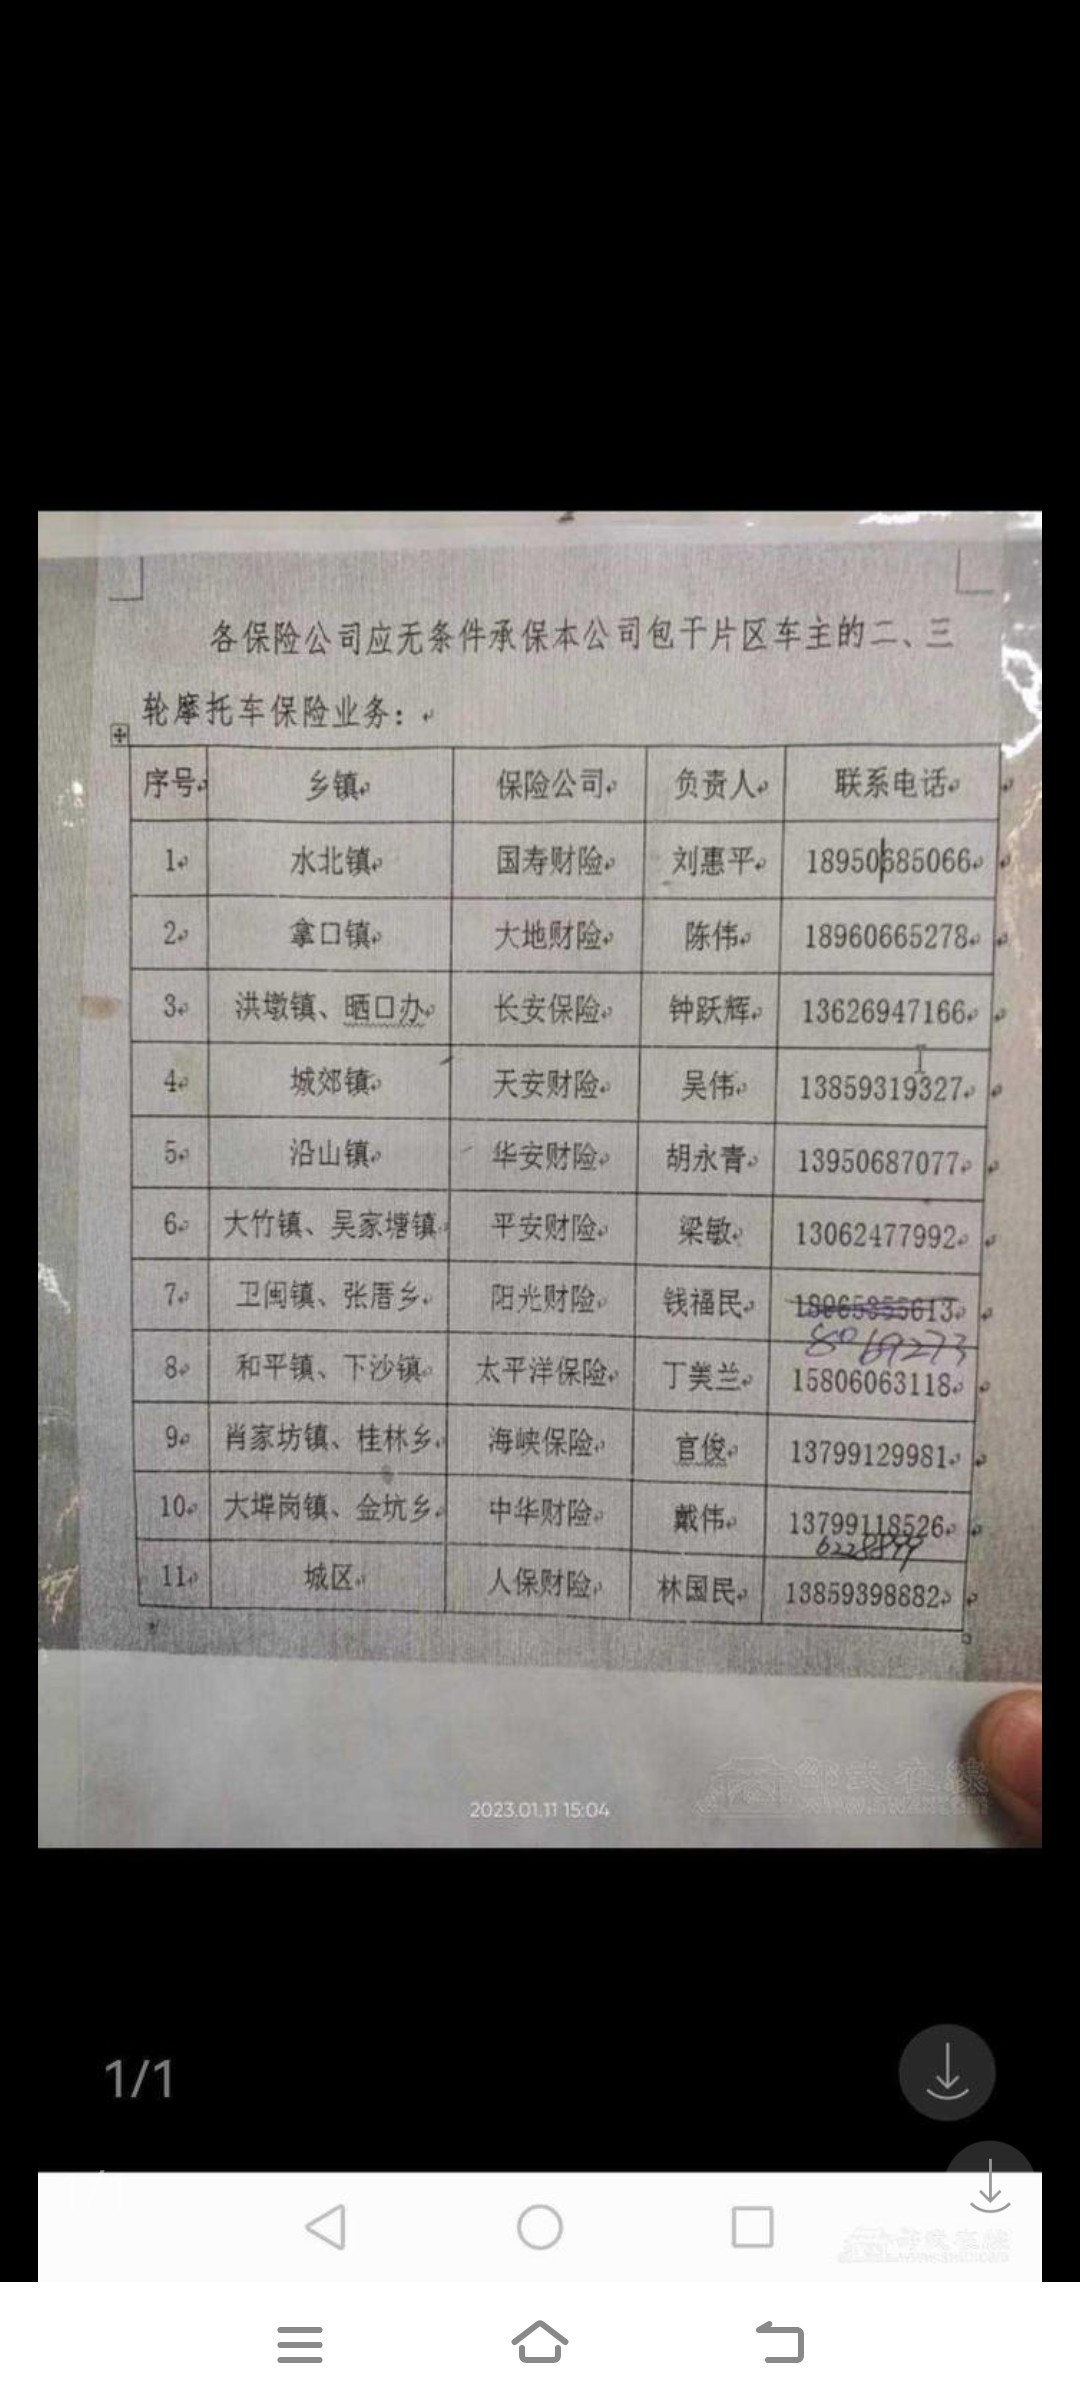 各保险公司应无条件承保本公司包干片区车主的二、三
轮摩托车保险业务：
序号 乡镇 保险公司 负责人 联系电话
1 水北镇 国寿财险 刘惠平 18950685066
2 拿口镇 大地财险 陈伟 18960665278
3 洪墩镇、晒口办 长安保险 钟跃辉 13626947166
4 城郊镇 天安财险 吴伟 13859319327
5 沿山镇 华安财险 胡永青 13950687077
6 大竹镇、吴家塘镇 平安财险 梁敏 13062477992
7 卫闽镇、张厝乡 阳光财险 钱福民
8069273
8 和平镇、下沙镇 太平洋保险 丁美兰 15806063118
9 肖家坊镇、桂林乡 海峡保险 官俊 13799129981
10 大埠岗镇、金坑乡 中华财险 戴伟 13799118526
6228899
11 城区 人保财险 林国民 13859398882
邵武在线
2023.01.11 15:04
1/1
邵武在线